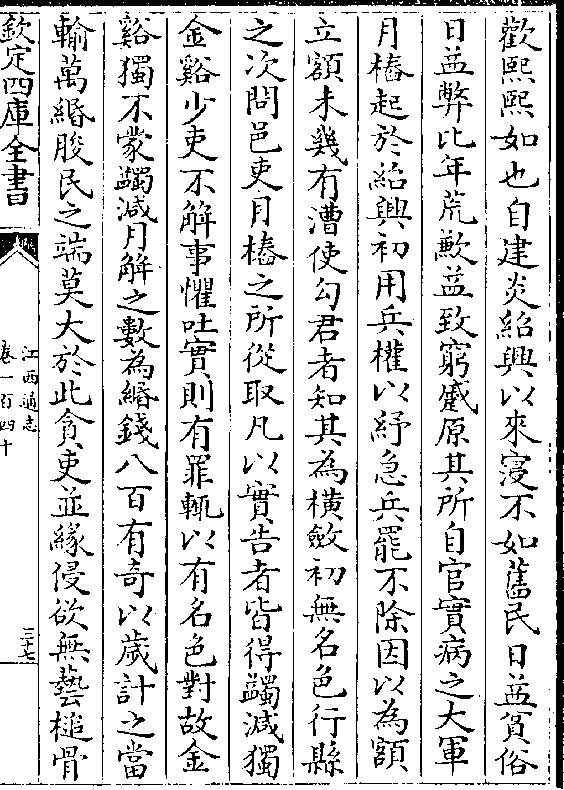 歡熙熙如也自建炎紹興以來寖不如舊民日益貧俗
日益弊比年荒歉益致窮蹙原其所自官實病之大軍
月樁起於紹興初用兵權以紓急兵罷不除因以為額
立額未幾有漕使勾君者知其為橫斂初無名色行縣
之次問邑吏月樁之所從取凡以實告者皆得蠲減獨
金谿少吏不解事懼吐實則有罪輒以有名色對故金
谿獨不蒙蠲減月解之數為緡錢八百有奇以歲計之當
輸萬緡朘民之端莫大於此貪吏並緣侵欲無藝槌骨
欽定四庫全書
江西通志
卷一百四十
三七